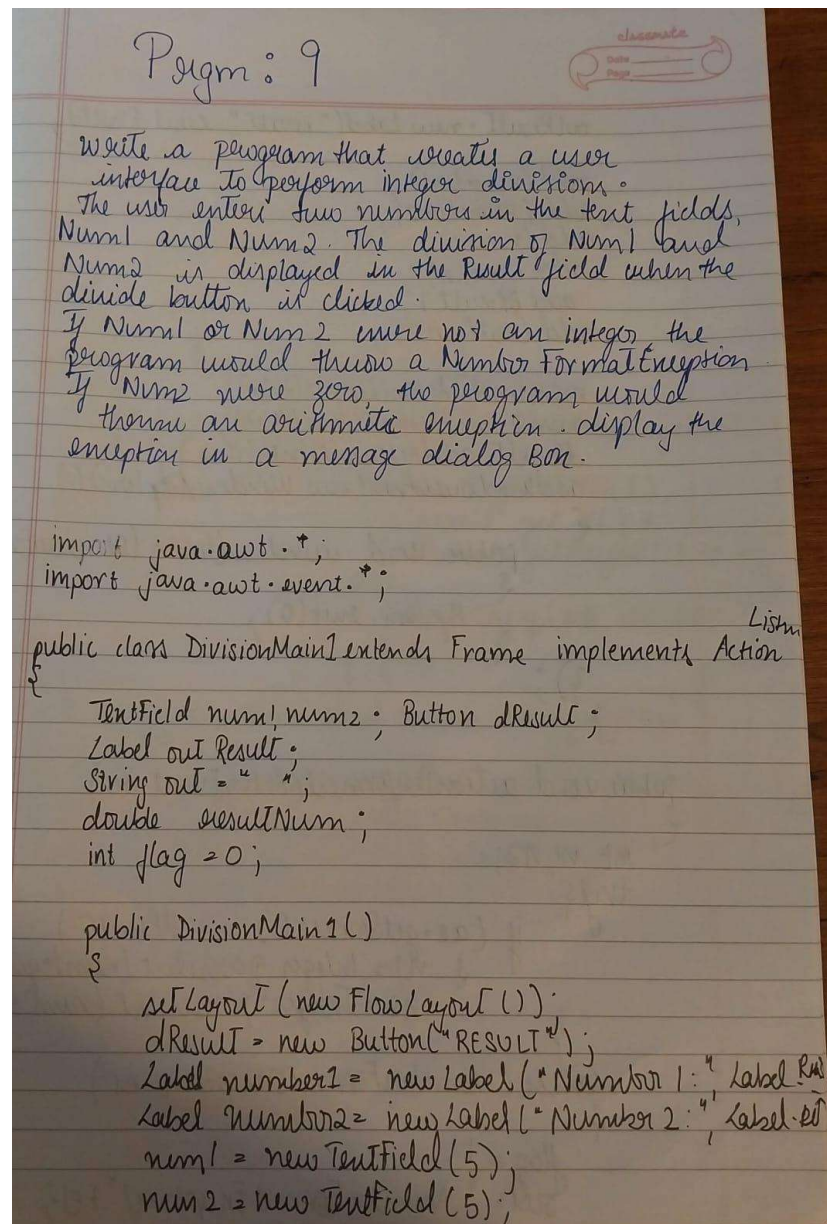 classmate
Date
Page
Prgm: 9
Write a program that creates a user
interface to perform integer divisions.
The user enters two numbers in the text fields,
Num1 and Num2. The division of Num1 and
Num2 is displayed in the Result field when the
divide button is clicked.
If Num1 or Num2 were not an integer, the
program would throw a Number FormatException
If Num2 were zero, the program would
throw an arithmetic exception. display the
exception in a message dialog Box.
import java.awt.*;
import java.awt.event.*;
public class DivisionMain1 extends Frame implements Action Listn
{
TextField num1, num2; Button dResult;
Label out Result;
String out = " ";
double resultNum;
int flag = 0;
public DivisionMain1()
{
setLayout (new FlowLayout ());
dResult = new Button("RESULT");
Label number1 = new Label ("Number 1:", Label.
Label number2 = new Label ("Number 2:", Label.
num1 = new TextField (5);
num2 = new TextField (5);